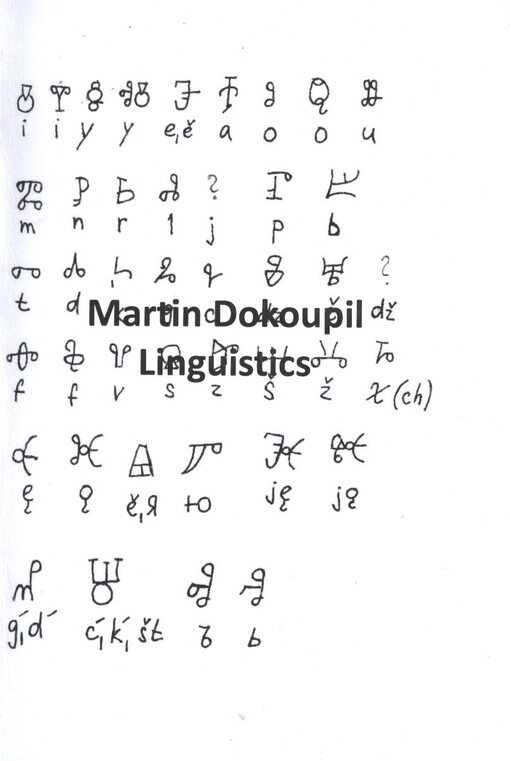 ⰵ ⰰ ⱁ ⱉ ⱆ
i i y y e,ě a o o u
ⰿ ⱀ ⱃ ⰾ ? ⱂ ⰱ
m n r l j p b
ⱅ ⰴ ⰽ ⰳ ⱌ ⰷ ⱍ ?
t d dž
Martin Dokoupil
Linguistics
ⱇ ⱚ ⰲ ⱄ ⰸ ⱎ ⰶ ⱈ
f f v s z š ž χ(ch)
ⱔ ⱘ ⱑ ⱓ ⱗ ⱙ
ę ǫ ě,я ю ję jǫ
ⰼ ⱋ ⱏ ⱐ
ǵ,d́ ć,ḱ,št ъ ь